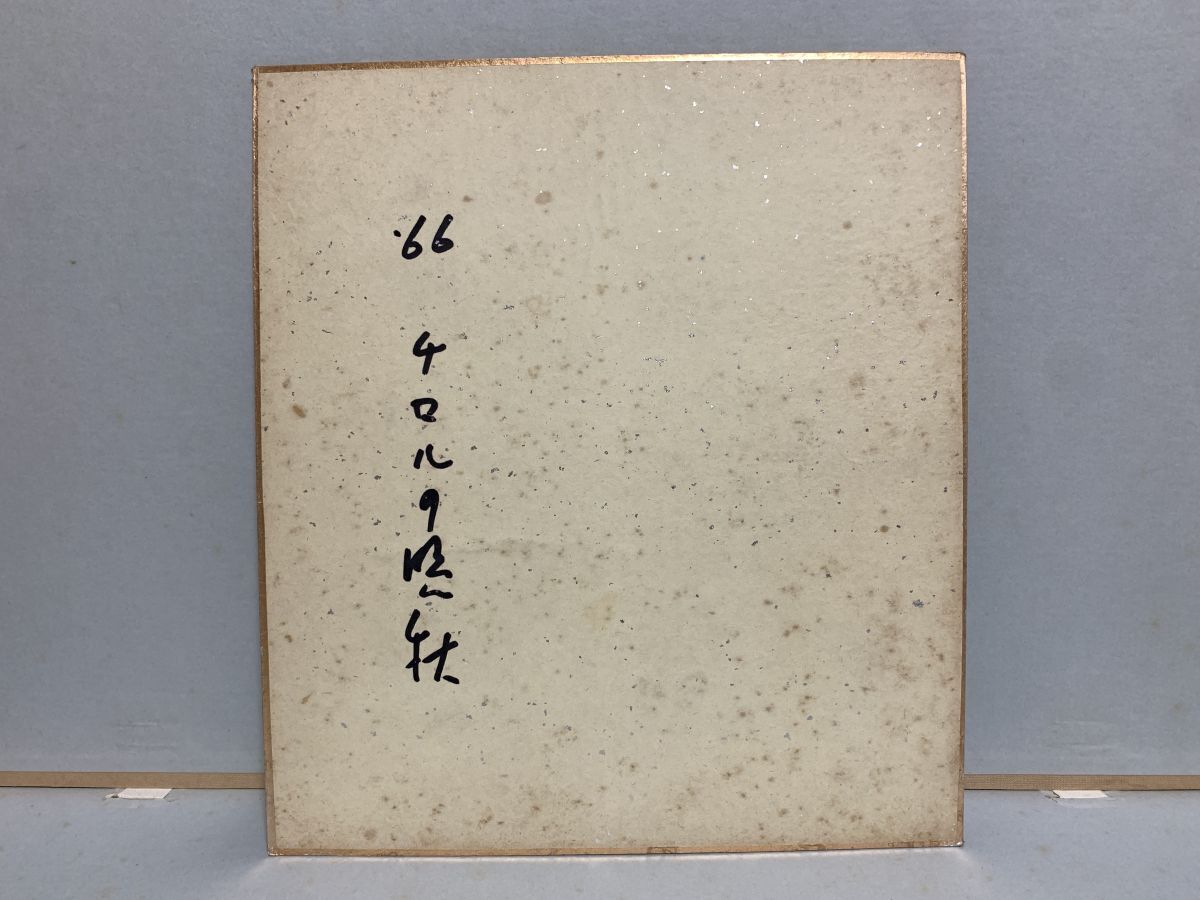 '66 チロルの晩秋